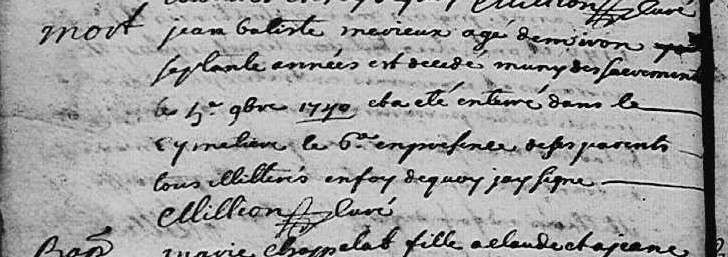 Million curé
mort jean batiste mevieux agé denviron
septante années est decedé muny des sacrements
le 5e 9bre 1740 et a eté enterré dans le
cymetiere le 6e en presence de ses parents
tous illiterés en foy de quoy jay signe
Million curé
Bap marie Chappelat fille a claude et a jeane